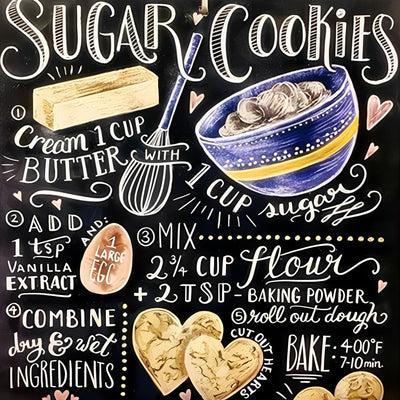 SUGAR COOKIES
① Cream 1 CUP
BUTTER WITH
1 CUP sugar
② ADD
1 tsp
VANILLA
EXTRACT
AND:
1
LARGE
EGG
③ MIX
2 3/4 CUP Flour
+ 2 TSP - BAKING POWDER
④ COMBINE
dry & wet
INGREDIENTS
⑤ roll out dough
CUT OUT HEARTS
BAKE: 400°F
7-10 min.